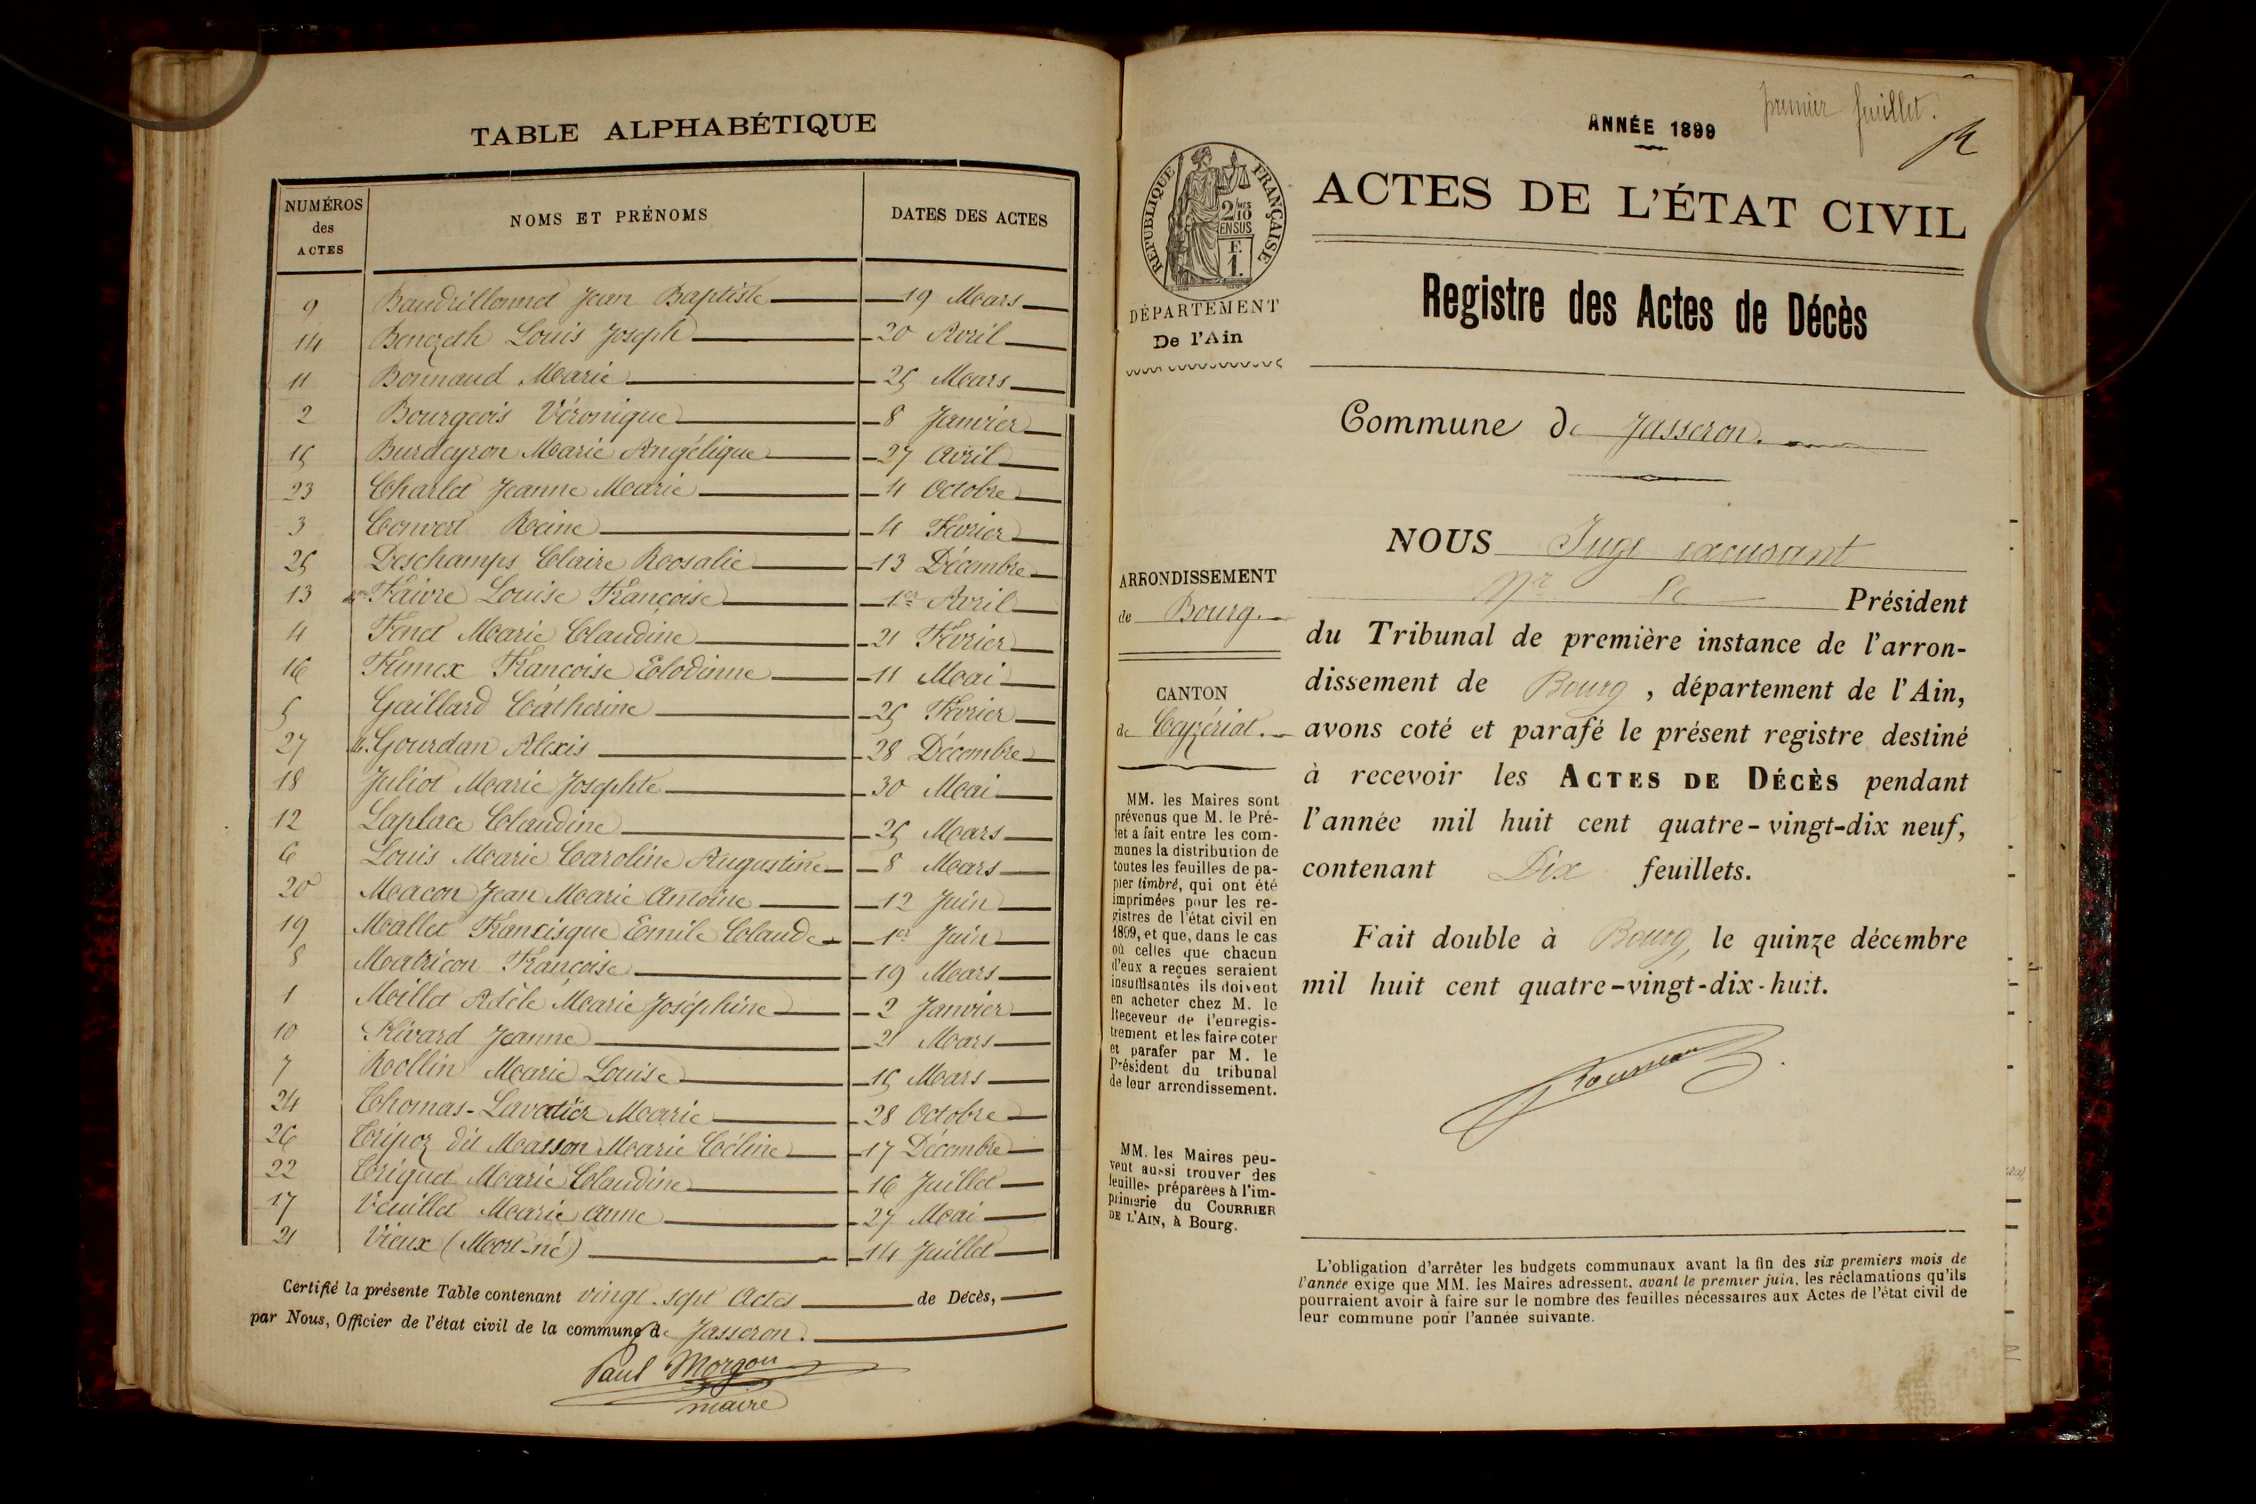 TABLE ALPHABÉTIQUE
NUMÉROS des ACTES
NOMS ET PRÉNOMS
DATES DES ACTES
9 Baudrillonnet Jean Baptiste 19 Mars
14 Benezeth Louis Joseph 20 Avril
11 Bonnaud Marie 25 Mars
2 Bourgeois Véronique 8 Janvier
15 Burdeyron Marie Angélique 27 Avril
23 Charlet Jeanne Marie 4 Octobre
3 Convert Reine 4 Février
25 Deschamps Claire Rosalie 13 Décembre
13 Faivre Louise Françoise 1er Avril
4 Fenet Marie Claudine 21 Février
16 Fumex Francoise 11 Mai
5 Gaillard Catherine 25 Février
27 Gourdan Alexis 28 Décembre
18 Juliot Marie Josephte 30 Mai
12 Laplace Claudine 25 Mars
6 Louis Marie Caroline Augustine 8 Mars
20 Macon Jean Marie Antoine 12 Juin
19 Mallet Francisque Emile Claude 1er Juin
8 Matricon Françoise 19 Mars
1 Millet Adèle Marie Joséphine 2 Janvier
10 Rivard Jeanne 21 Mars
7 Rollin Marie Louise 15 Mars
24 Thomas-Lavatier Marie 28 Octobre
26 Tripoz dit Masson Marie Céline 17 Décembre
22 Triquet Marie Claudine 16 Juillet
17 Veuillet Marie Anne 27 Mai
21 Vieux (Mort-né) 14 Juillet
Certifié la présente Table contenant vingt-sept Actes de Décès,
par Nous, Officier de l'état civil de la commune de Jasseron.
Paul Morgon
maire
premier feuillet.
ANNÉE 1899
RÉPUBLIQUE FRANÇAISE
2/10 EN SUS
F. 1.
DÉPARTEMENT
De l'Ain
ARRONDISSEMENT
de Bourg.
CANTON
de Ceyzériat.
MM. les Maires sont
prévenus que M. le Pré-
fet a fait entre les com-
munes la distribution de
toutes les feuilles de pa-
pier timbré, qui ont été
imprimées pour les re-
gistres de l'état civil en
1899, et que, dans le cas
où celles que chacun
d'eux a reçues seraient
insuffisantes ils doivent
en acheter chez M. le
Receveur de l'enregis-
trement et les faire coter
et parafer par M. le
Président du tribunal
de leur arrondissement.
MM. les Maires peu-
vent aussi trouver des
feuilles préparées à l'im-
primerie du COURRIER
DE L'AIN, à Bourg.
ACTES DE L'ÉTAT CIVIL
Registre des Actes de Décès
Commune de Jasseron.
NOUS Juge excusant
Mr Le Président
du Tribunal de première instance de l'arron-
dissement de Bourg, département de l'Ain,
avons coté et parafé le présent registre destiné
à recevoir les ACTES DE DÉCÈS pendant
l'année mil huit cent quatre-vingt-dix neuf,
contenant Dix feuillets.
Fait double à Bourg, le quinze décembre
mil huit cent quatre-vingt-dix-huit.
L'obligation d'arrêter les budgets communaux avant la fin des six premiers mois de
l'année exige que MM. les Maires adressent, avant le premier juin, les réclamations qu'ils
pourraient avoir à faire sur le nombre des feuilles nécessaires aux Actes de l'état civil de
leur commune pour l'année suivante.